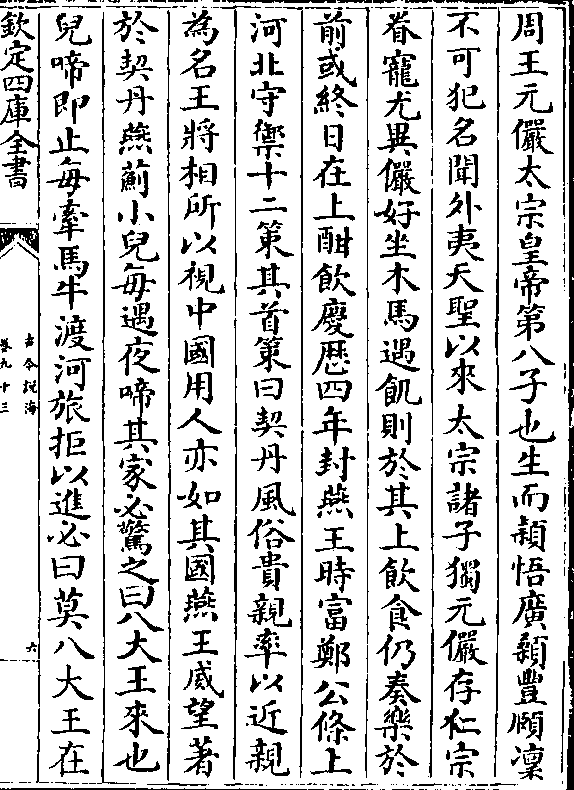 周王元儼太宗皇帝第八子也生而穎悟廣顙豐頤凜
不可犯名聞外夷天聖以來太宗諸子獨元儼存仁宗
眷寵尤異儼好坐木馬遇飢則於其上飲食仍奏樂於
前或終日在上酣飲慶歷四年封燕王時富鄭公條上
河北守禦十二策其首策曰契丹風俗貴親率以近親
為名王將相所以視中國用人亦如其國燕王威望著
於契丹燕薊小兒每遇夜啼其家必驚之曰八大王來也
兒啼即止每牽馬牛渡河旅拒以進必曰莫八大王在
欽定四庫全書
古今說海
卷九十三
六